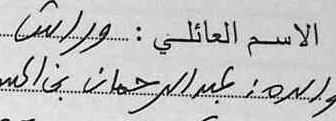 الاسم العائلي : وراش
والده : عبد الرحمان بن